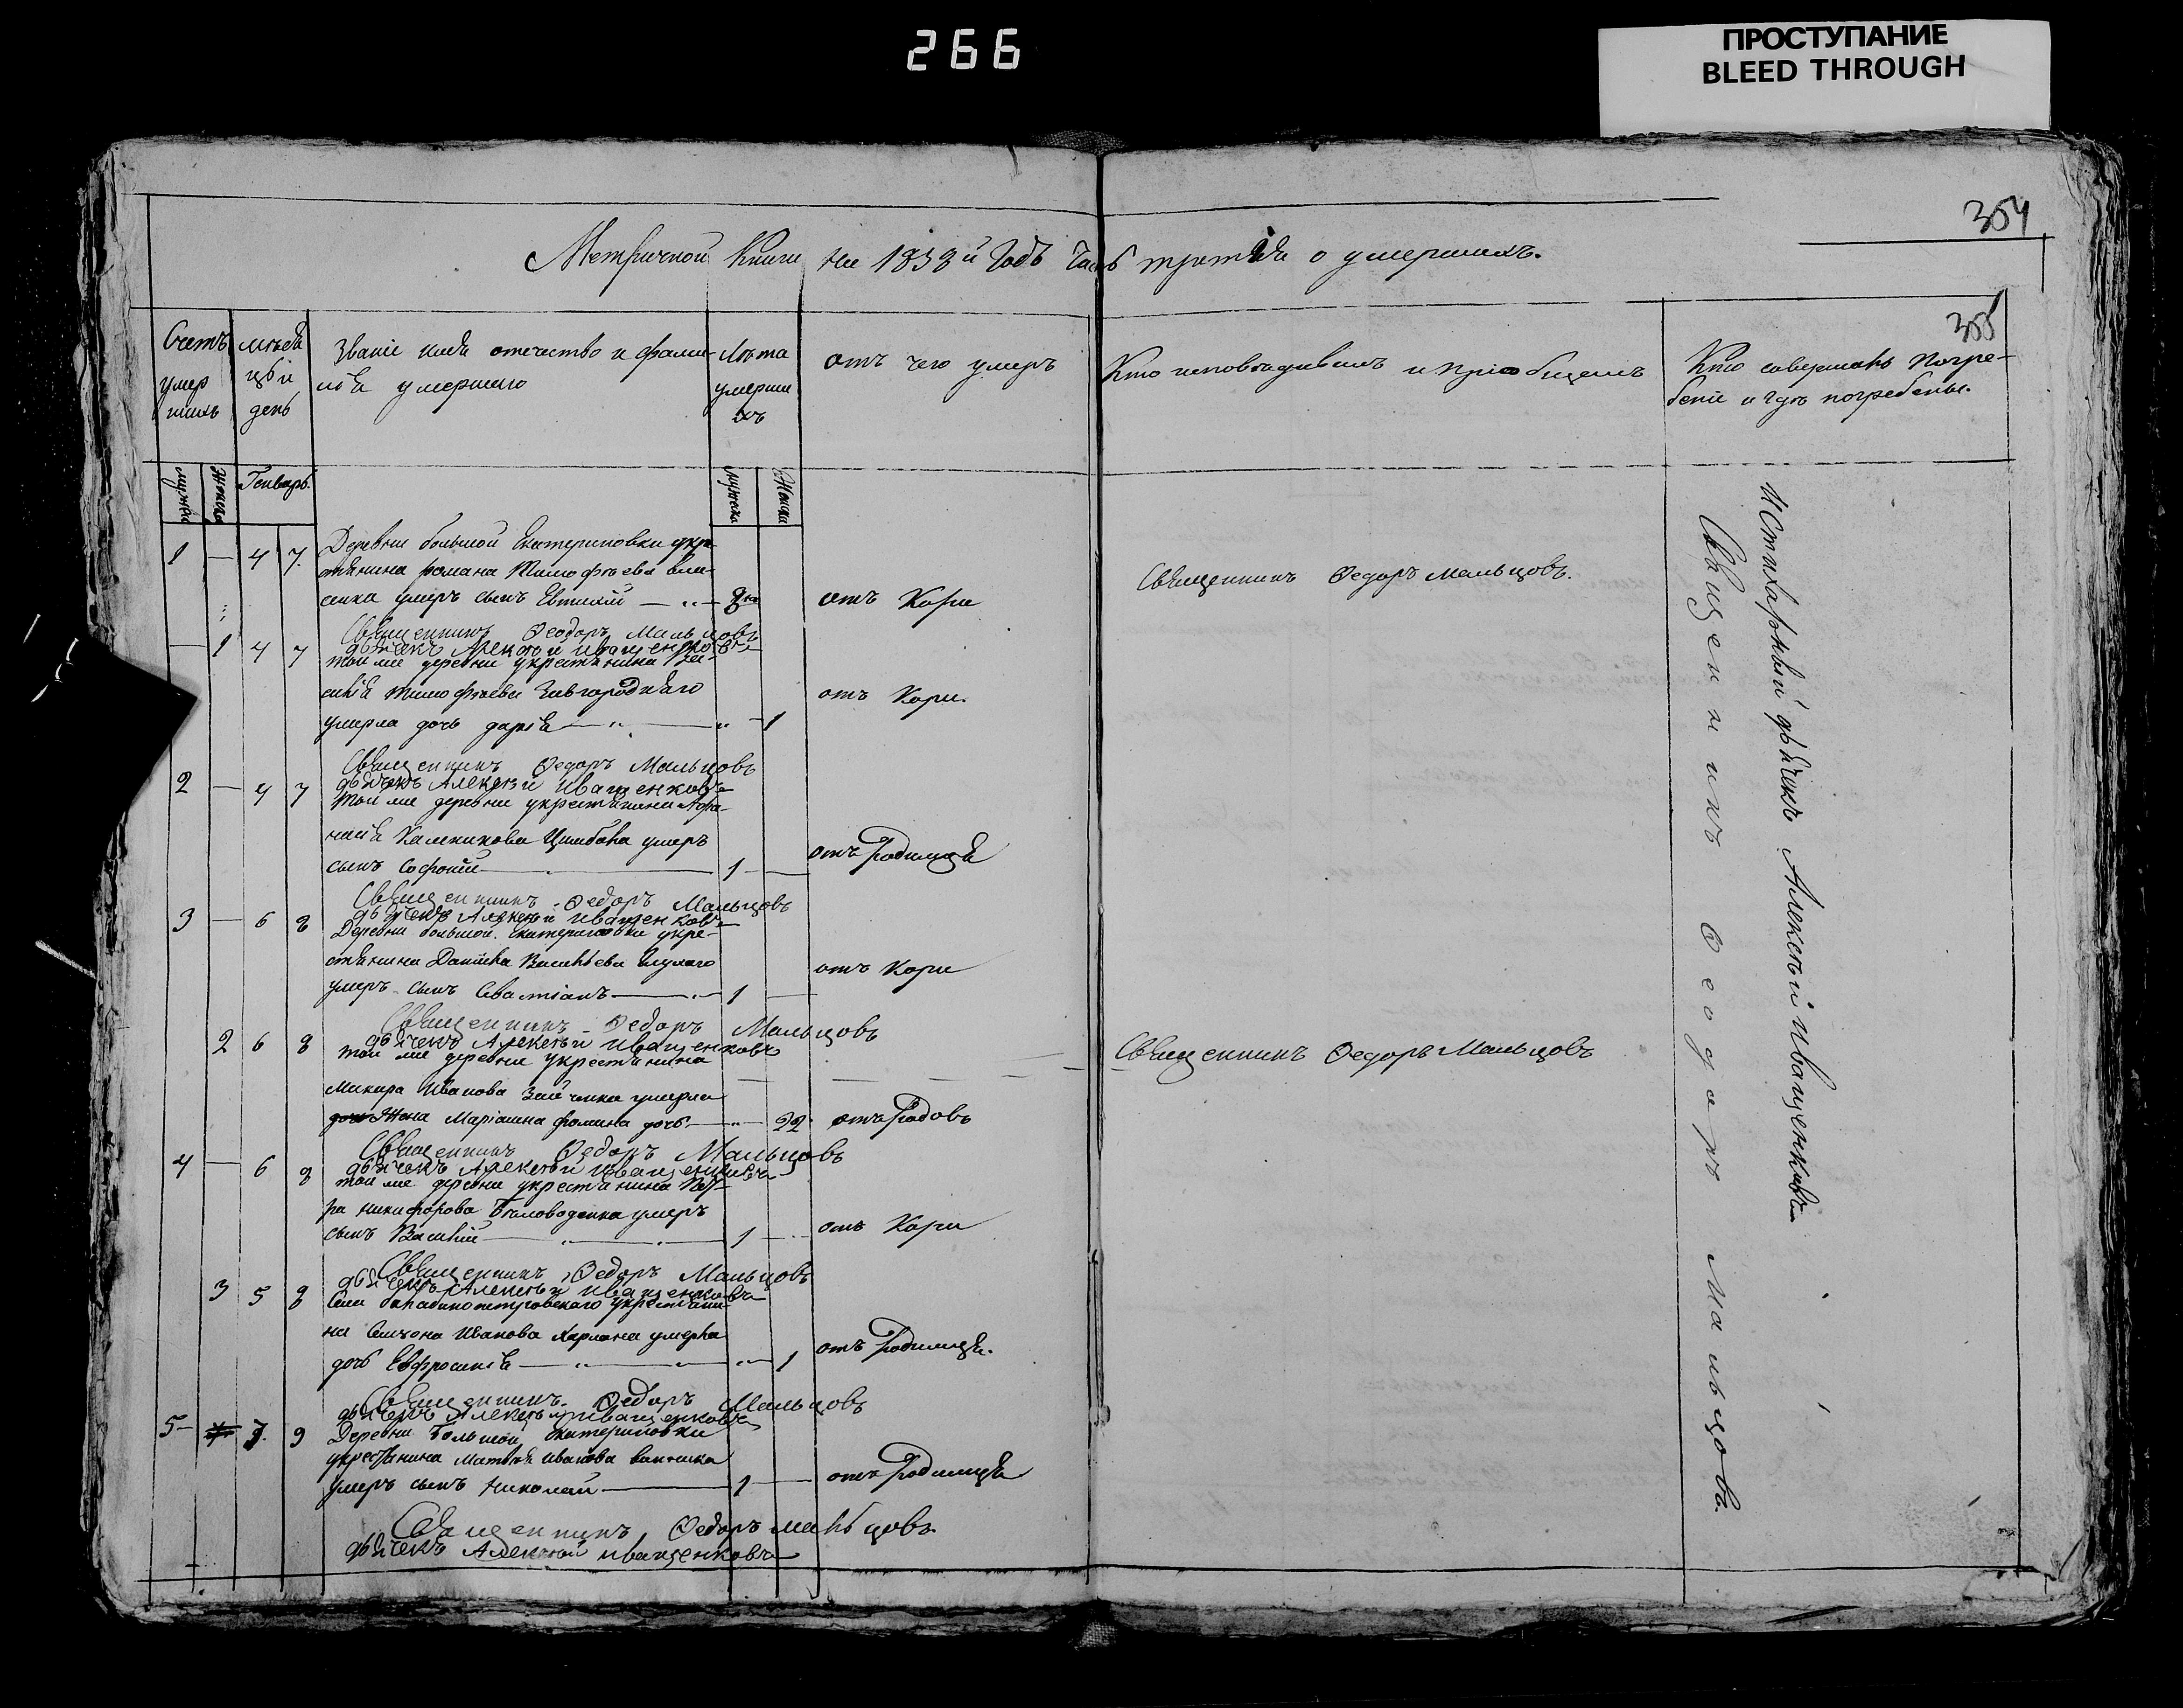 266
ПРОСТУПАНИЕ
BLEED THROUGH
354
Метричной Книги на 1838й Годъ Часть третія о умершихъ.
355
Счетъ умер шихъ
мѣся цъ и день
Званіе имя отечество и фами-
лія умершаго
Лѣта умерши хъ
отъ чего умеръ
Кто исповѣдывалъ и пріобщалъ
Кто совершалъ Погре-
беніе и гдѣ погребены.
Генварь
1 — 4 7. Деревни большой Екатериновки укре-
стянина романа Тимофѣева вла-
сенка умеръ сынъ Евтихій — отъ Кори
Священникъ Ѳеодоръ Мальцовъ.
Священникъ Ѳеодоръ Мальцовъ
дьячекъ Алексѣй Иващенковъ
— 1 4 7 той же деревни укрестянина
Тимофѣева Завгородняго
умерла дочь дарія — 1 отъ Кори.
Священникъ Ѳеодоръ Мальцовъ
дьячекъ Алексѣй Иващенковъ
2 — 4 7 той же деревни укрестянина Афа-
насія Каленикова Цимбала умеръ
сынъ Софроній — 1 — отъ Родимця
Священникъ Ѳеодоръ Мальцовъ
дьячекъ Алексѣй Иващенковъ
3 — 6 8 Деревни большой Екатериновки укре-
стянина Даніила Васильева
умеръ сынъ Севастіанъ — 1 — отъ Кори
Священникъ Ѳеодоръ Мальцовъ
дьячекъ Алексѣй Иващенковъ
2 6 8 той же деревни укрестянина
Макара Иванова Зайченка умерла
Жена Маріанна фомина дочь — 22 отъ Родовъ
Священникъ Ѳеодоръ Мальцовъ
Священникъ Ѳеодоръ Мальцовъ
дьячекъ Алексѣй Иващенковъ
4 — 6 8 той же деревни укрестянина Пет-
ра никифорова Бѣловоденка умеръ
сынъ Василій — 1 — отъ Кори
Священникъ Ѳеодоръ Мальцовъ
дьячекъ Алексѣй Иващенковъ
3 5 8 Села укрестяни-
на Семіона Иванова Харлана умерла
дочь Евфросинія — 1 отъ Родимця.
Священникъ Ѳеодоръ Мальцовъ
дьячекъ Алексѣй Иващенковъ
5 — 7. 9 Деревни Большой Екатериновки
укрестянина Матвѣя Иванова
умеръ сынъ Николай — 1 — отъ Родимця
Священникъ Ѳеодоръ Мальцовъ.
дьячекъ Алексѣй Иващенковъ
Священникъ Ѳеодоръ Мальцовъ.
И Стихарный дьячекъ Алексѣй Иващенковъ